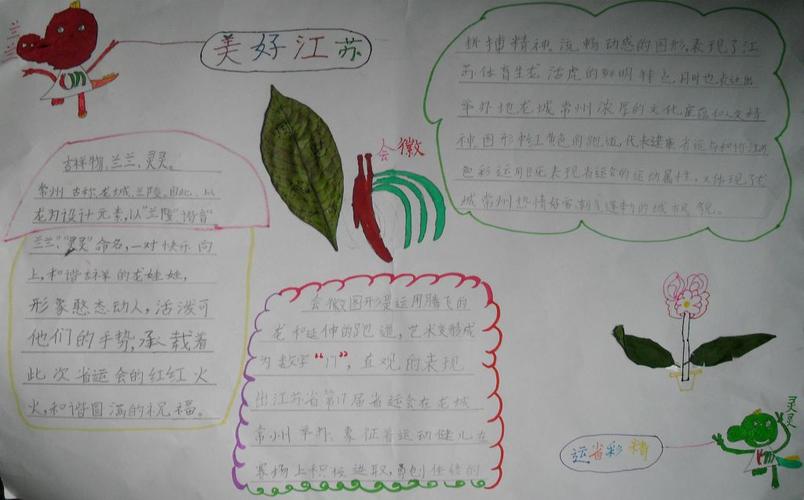 兰兰
美好江苏
会徽
吉祥物，兰兰，灵灵。
常州古称龙城、兰陵，因此，以
龙为设计元素，以“兰陵”谐音
兰兰”，“灵灵”命名，一对快乐向
上，和谐吉祥的龙娃娃，
形象憨态动人，活泼可
他们的手势，承载着
此次省运会的红红火
火，和谐圆满的祝福。
会徽图形是运用腾飞的
龙和延伸的跑道，艺术变形成
为数字“17”，直观的表现
出江苏省第17届省运会在龙城
常州举办，象征着运动健儿在
赛场上积极进取，勇创佳绩的
拼搏精神。流畅动感的图形，表现了江
苏体育生龙活虎的鲜明特点，同时也表达出
举办地龙城常州浓厚的文化底蕴和人文精
神图形中红黄色的跑道，代表
色彩运用既表现省运会的运动属性，又体现了龙
城常州热情好客
运省彩精
灵灵